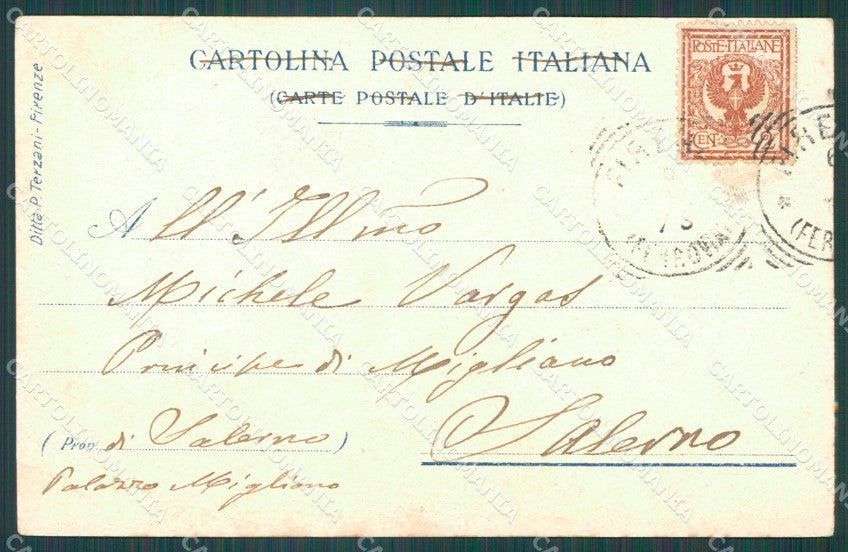 CARTOLINA POSTALE ITALIANA
(CARTE POSTALE D'ITALIE)
Ditta P. Terzani - Firenze
POSTE-ITALIANE
CEN. 2
FIRENZE
(FERROVIA)
All'Illmo
Michele Vargas
Principe di Migliano
Salerno
(Prov. di Salerno)
Palazzo Migliano
CARTOLINOMANIA